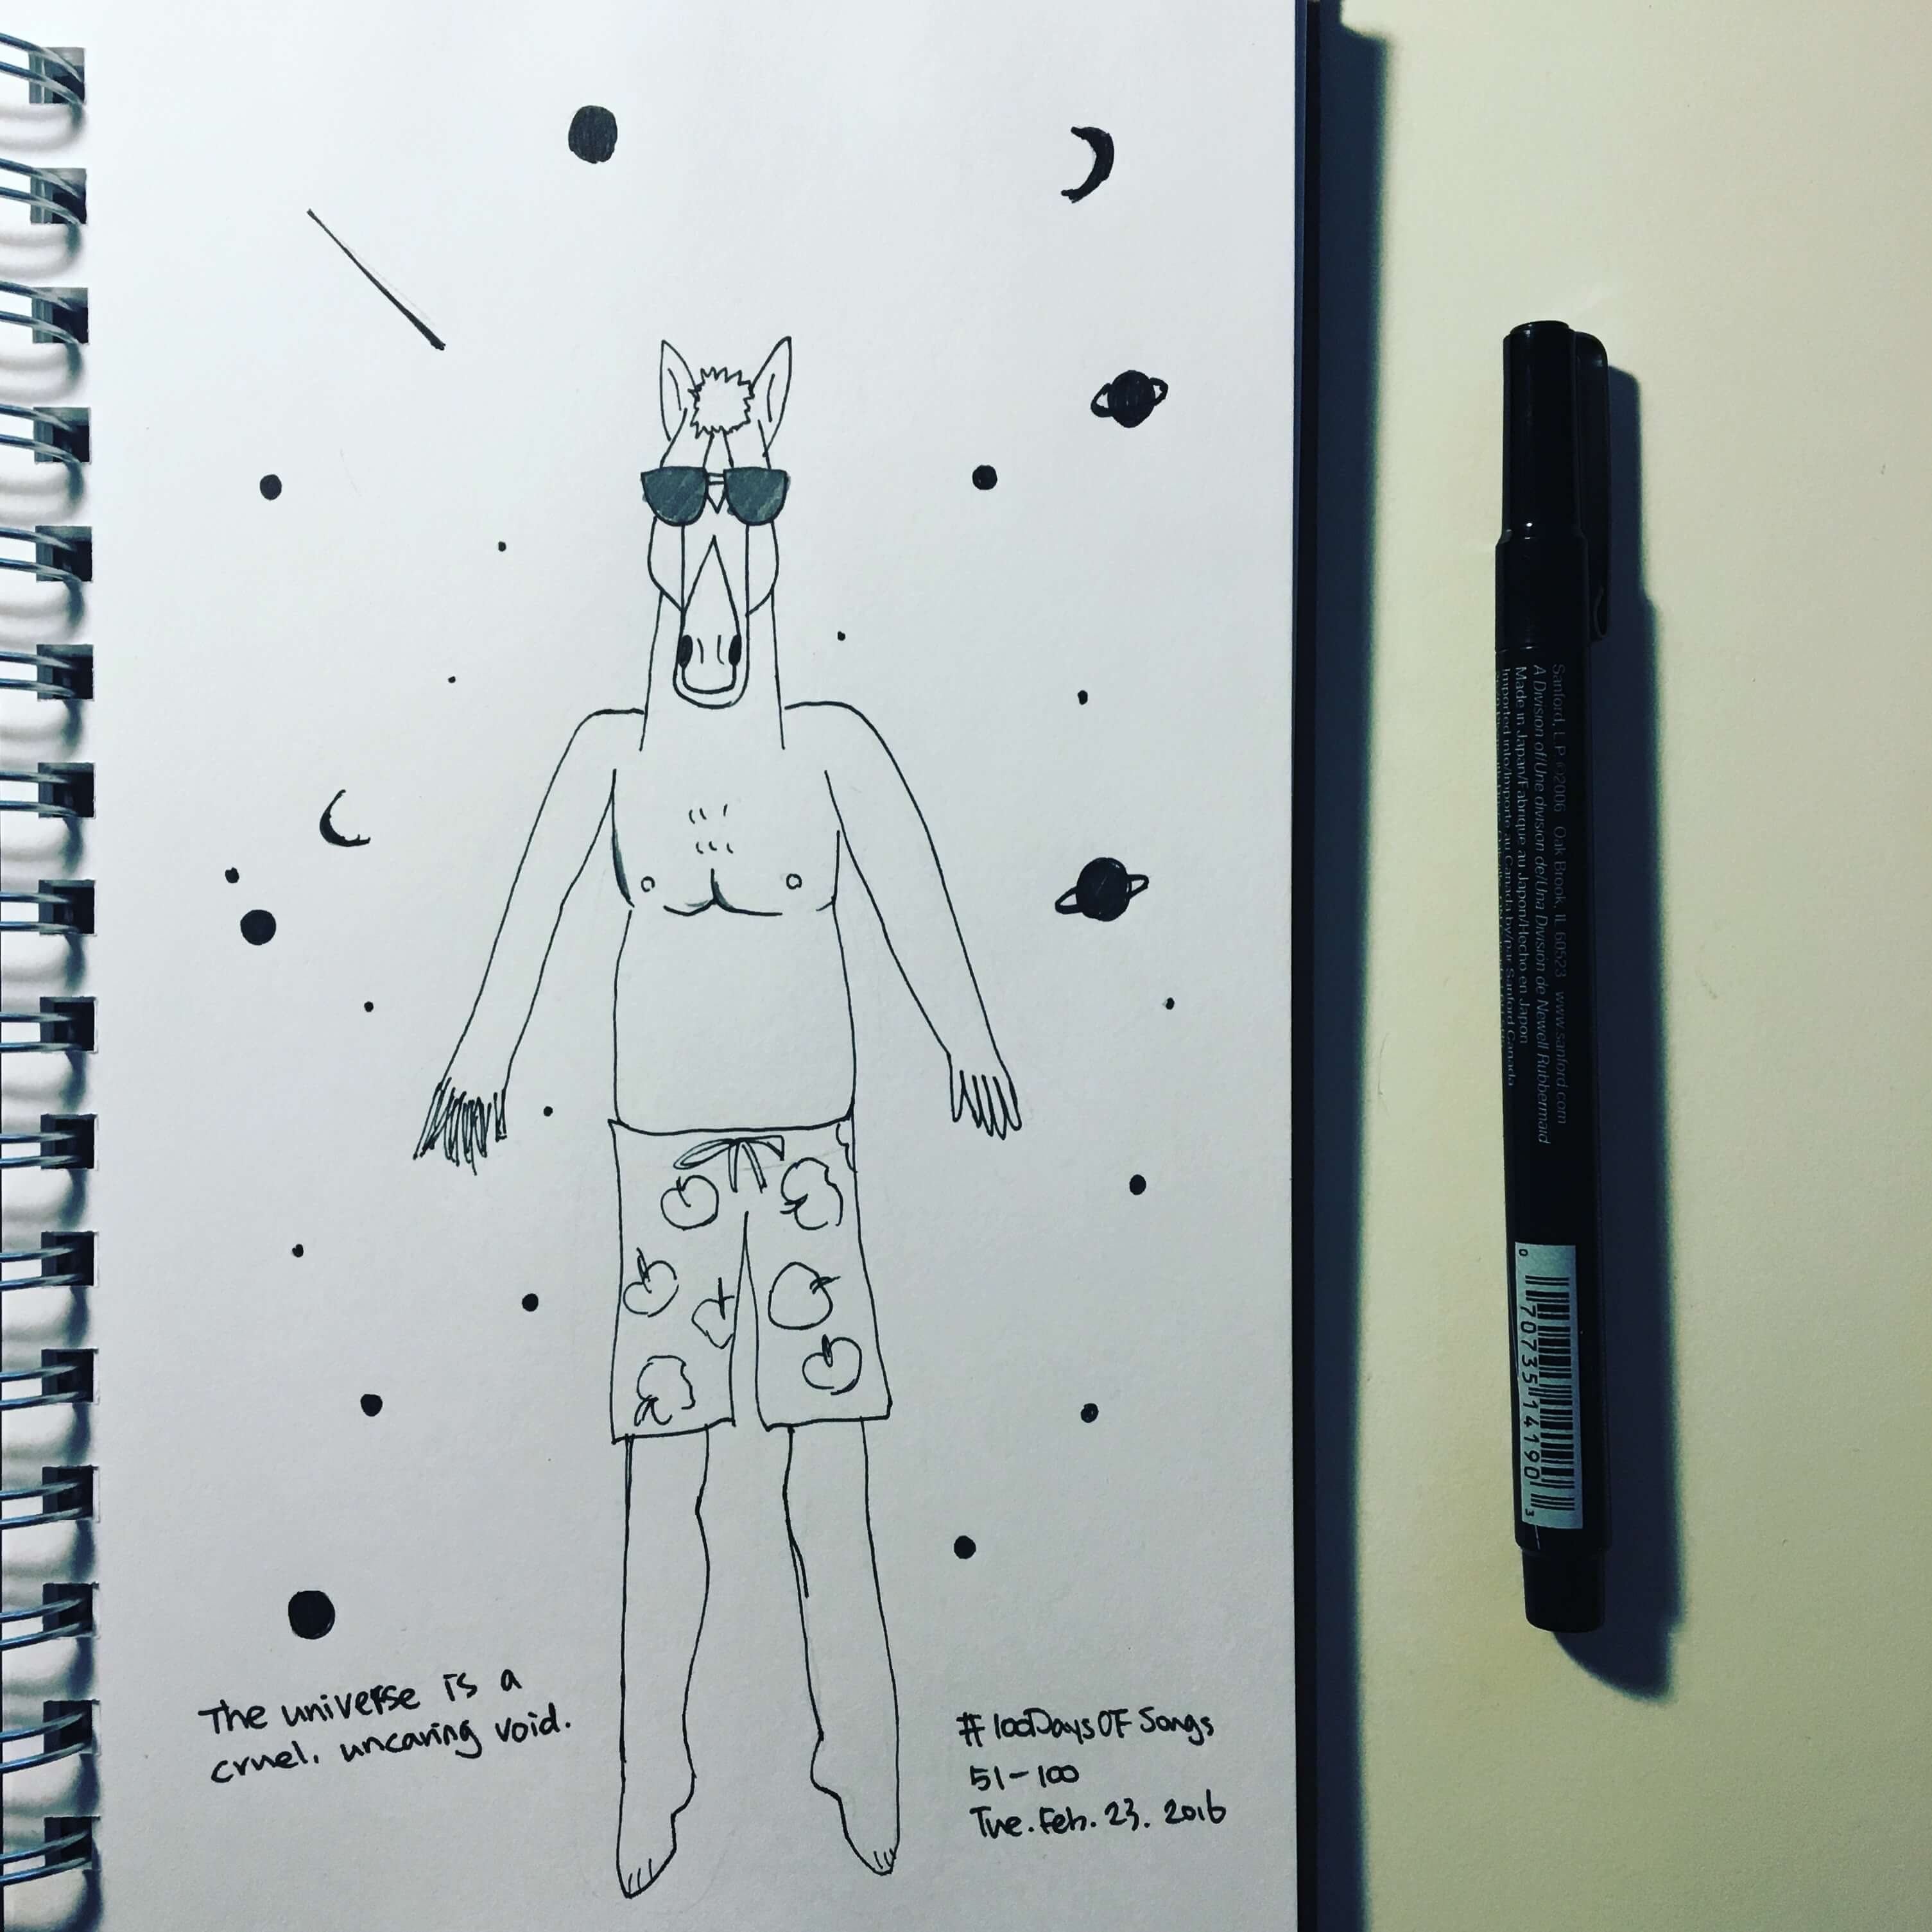 The universe is a
cruel. uncaring void.
#100DaysOFSongs
51-100
Tue. Feb. 23. 2016
Sanford, L.P. ©2006 Oak Brook, IL 60523 www.sanford.com
A Division of/Une division de/Una División de Newell Rubbermaid
Made in Japan/Fabriqué au Japon/Hecho en Japon
Imported into/Importé au Canada by/par Sanford Canada
0 70735 14190 3